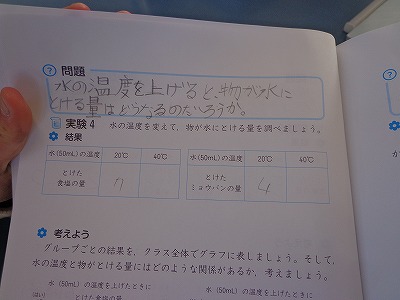 ? 問題
水の温度を上げると、物が水に
とける量はどうなるのだろうか。
実験4 水の温度を変えて、物が水にとける量を調べましょう。
結果
水(50mL)の温度 20℃ 40℃
とけた
食塩の量 7
水(50mL)の温度 20℃ 40℃
とけた
ミョウバンの量 4
考えよう
グループごとの結果を、クラス全体でグラフに表しましょう。そして、
水の温度と物がとける量にはどのような関係があるか、考えましょう。
水(50mL)の温度を上げたときに
水(50mL)の温度を上げたときに
(はい)
とけた食塩の量